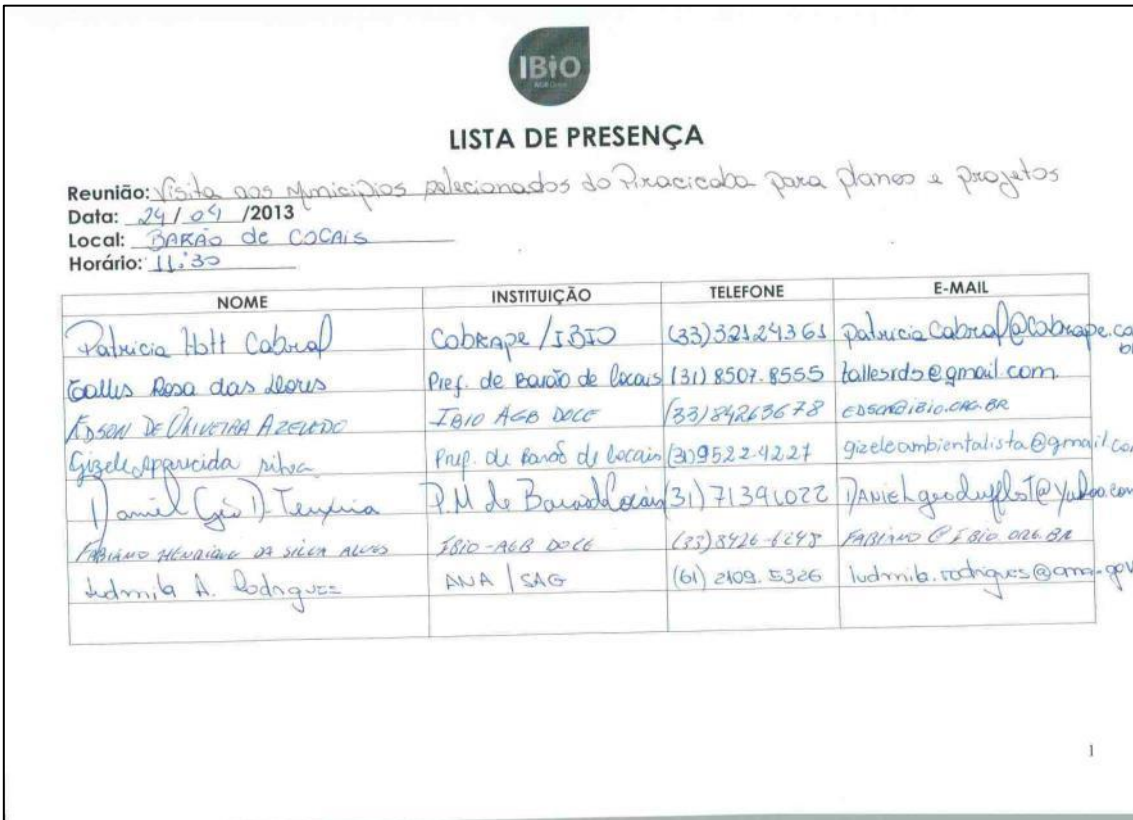 IBiO
AGB Doce
LISTA DE PRESENÇA
Reunião: Visita aos Municípios selecionados do Piracicaba para planos e projetos
Data: 24 / 04 /2013
Local: BARÃO de COCAIS
Horário: 11:30
NOME INSTITUIÇÃO TELEFONE E-MAIL
Patricia Hott Cabral Cobrape / IBIO (33) 32124361 patricia Cabral@Cobrape.co
Talles Rosa das Pref. de Barão de Cocais (31) 8507.8555 tallesrds@gmail.com
EDSON DE OLIVEIRA AZEVEDO IBIO AGB DOCE (33) 84263678 EDSON@IBIO.ORG.BR
Gizele Aparecida silva Pref. de Barão de Cocais (31) 9522-4227 gizeleambientalista@gmail.com
Daniel D. Teixeira P.M de Barão de Cocais (31) 71396022
FABIANO HENRIQUE DA SILVA ALVES IBIO-AGB DOCE (33) 8426-6248 FABIANO@IBIO.ORG.BR
Ludmila A. Rodrigues ANA / SAG (61) 2109.5326 ludmila.rodrigues@ana.gov
1